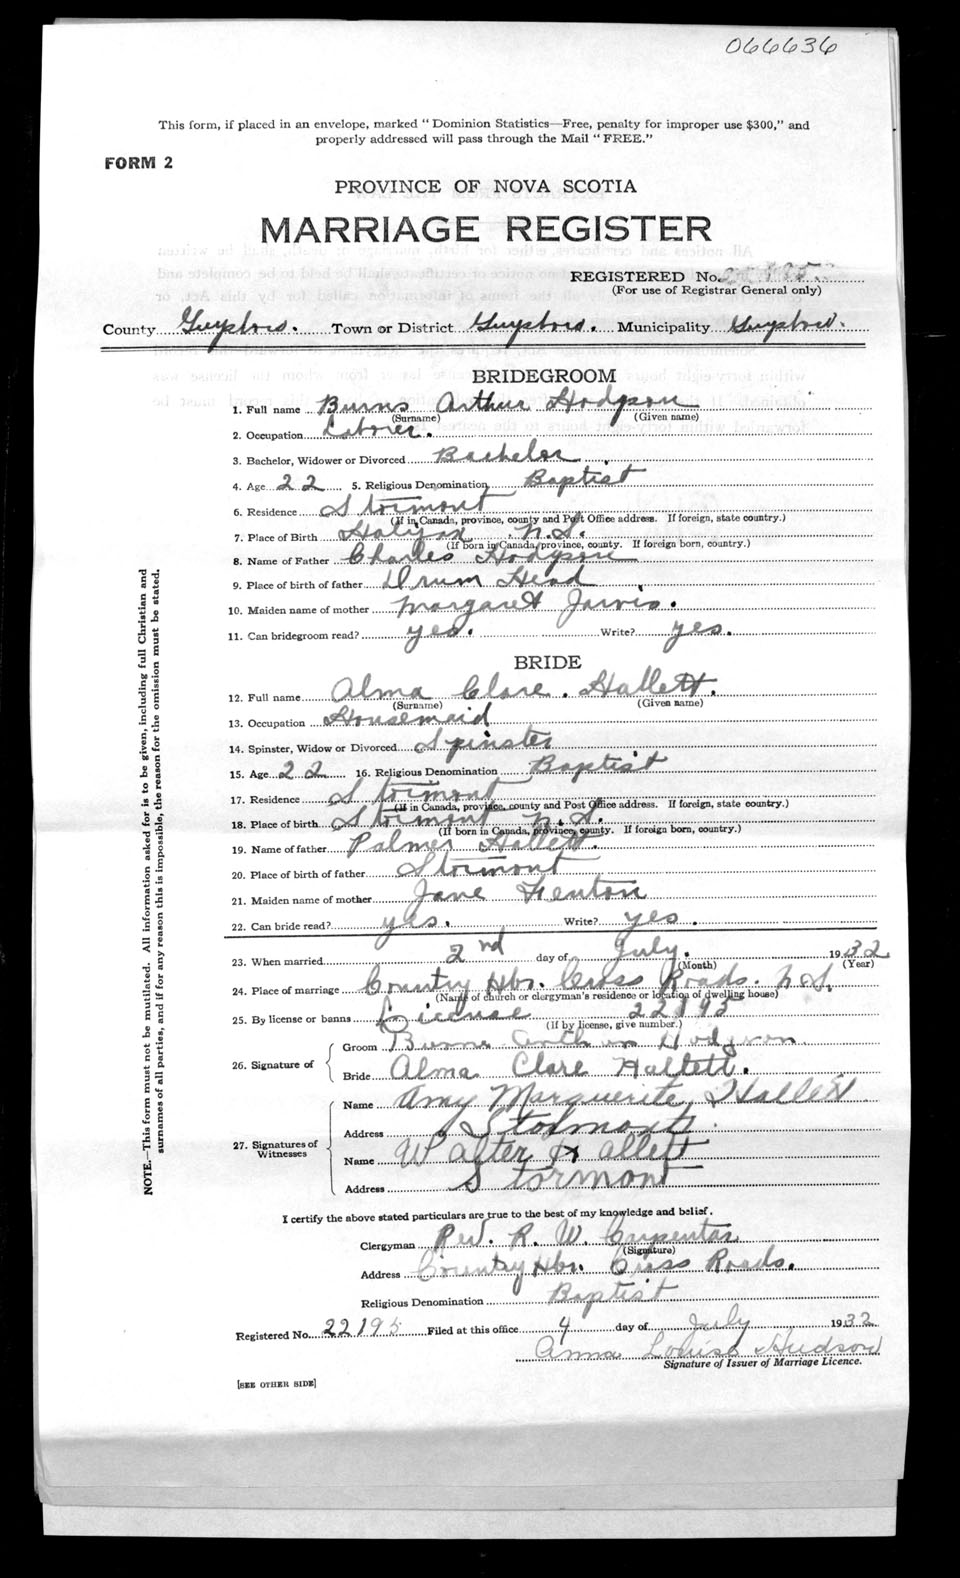 066636
This form, if placed in an envelope, marked "Dominion Statistics—Free, penalty for improper use $300," and
properly addressed will pass through the Mail "FREE."
FORM 2
PROVINCE OF NOVA SCOTIA
MARRIAGE REGISTER
REGISTERED No.
(For use of Registrar General only)
County Guysboro. Town or District Guysboro. Municipality Guysboro.
BRIDEGROOM
1. Full name Burns Arthur Hodgson
(Surname) (Given name)
2. Occupation Laborer.
3. Bachelor, Widower or Divorced Bachelor
4. Age 22 5. Religious Denomination Baptist
6. Residence Stormont
(If in Canada, province, county and Post Office address. If foreign, state country.)
7. Place of Birth Halifax N.S.
(If born in Canada, province, county. If foreign born, country.)
8. Name of Father Charles Hodgson
9. Place of birth of father Drum Head
10. Maiden name of mother Margaret Jarvis.
11. Can bridegroom read? yes. Write? yes.
BRIDE
12. Full name Alma Clare. Hallett.
(Surname) (Given name)
13. Occupation Housemaid
14. Spinster, Widow or Divorced Spinster
15. Age 22 16. Religious Denomination Baptist
17. Residence Stormont
(If in Canada, province, county and Post Office address. If foreign, state country.)
18. Place of birth Stormont N.S.
(If born in Canada, province, county. If foreign born, country.)
19. Name of father Palmer Hallett.
20. Place of birth of father Stormont
21. Maiden name of mother Jane Fenton
22. Can bride read? yes. Write? yes.
23. When married 2nd day of July. 1932
(Month) (Year)
24. Place of marriage Country Hbr. Cross Roads. N.S.
(Name of church or clergyman's residence or location of dwelling house)
25. By license or banns License 22195
(If by license, give number.)
26. Signature of Groom Burns Arthur Hodgson
Bride Alma Clare Hallett.
27. Signatures of Witnesses Name Amy Marguerite Hallett
Address Stormont.
Name Walter Hallett
Address Stormont
I certify the above stated particulars are true to the best of my knowledge and belief.
Clergyman Rev. R. W. Carpenter
(Signature)
Address Country Hbr. Cross Roads.
Religious Denomination Baptist
Registered No. 22195 Filed at this office 4 day of July 1932
Anna Louise Hudson
Signature of Issuer of Marriage Licence.
[SEE OTHER SIDE]
NOTE.—This form must not be mutilated. All information asked for is to be given, including full Christian and
surnames of all parties, and if for any reason this is impossible, the reason for the omission must be stated.